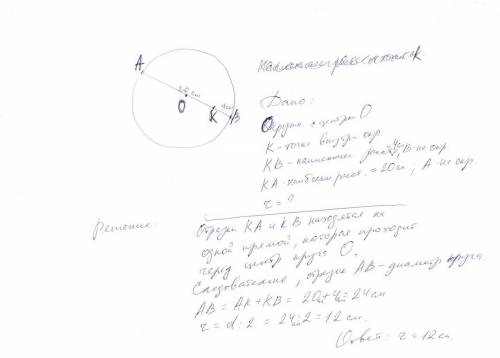 A
20 см
О
4см
К
В
Дано:
Окружн. с центром О
К - точка внутри окр.
КВ - наименьшее расст. = 4см, В - на окр.
КА - наибольш расст. = 20см, А - на окр.
r = ?
Решение:
Отрезки КА и КВ находятся на
одной прямой, которая проходит
через центр круга О.
Следовательно, отрезок АВ - диаметр круга
АВ = АК + КВ = 20см + 4см = 24 см
r = d : 2 = 24см : 2 = 12 см.
Ответ: r = 12см.